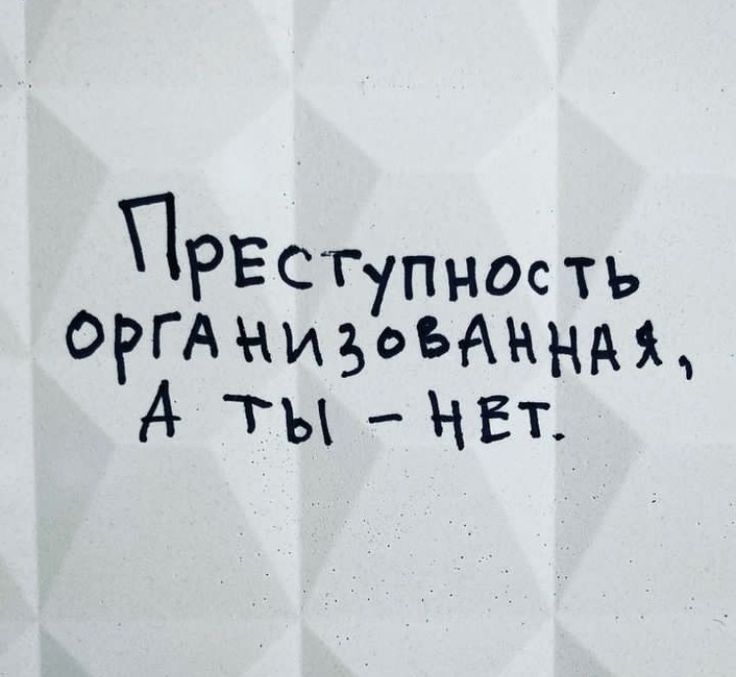 Преступность
организованная,
а ты - нет.